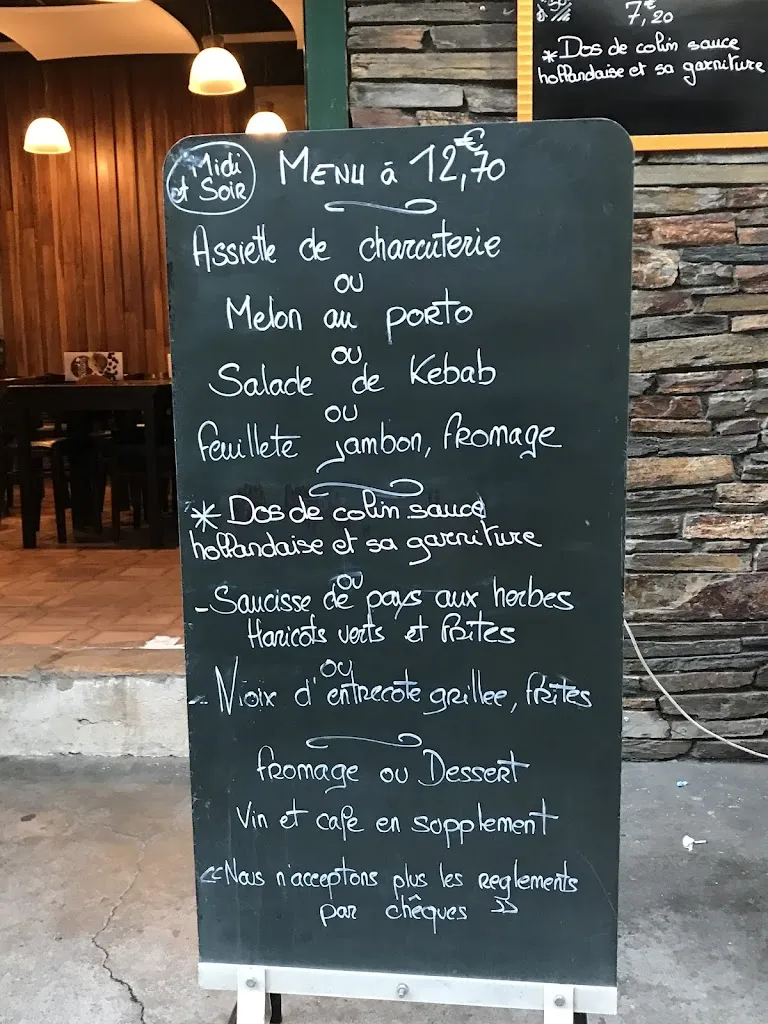 Midi
et Soir
Menu à 12,70€
Assiette de charcuterie
ou
Melon au porto
ou
Salade de Kebab
ou
feuillete jambon, fromage
* Dos de colin sauce
hollandaise et sa garniture
ou
- Saucisse de pays aux herbes
Haricots verts et frites
ou
- Noix d'entrecote grillee, frites
fromage ou Dessert
Vin et cafe en sopplement
<<Nous n'acceptons plus les reglements
par chêques >>
7,20€
* Dos de colin sauce
hollandaise et sa garniture